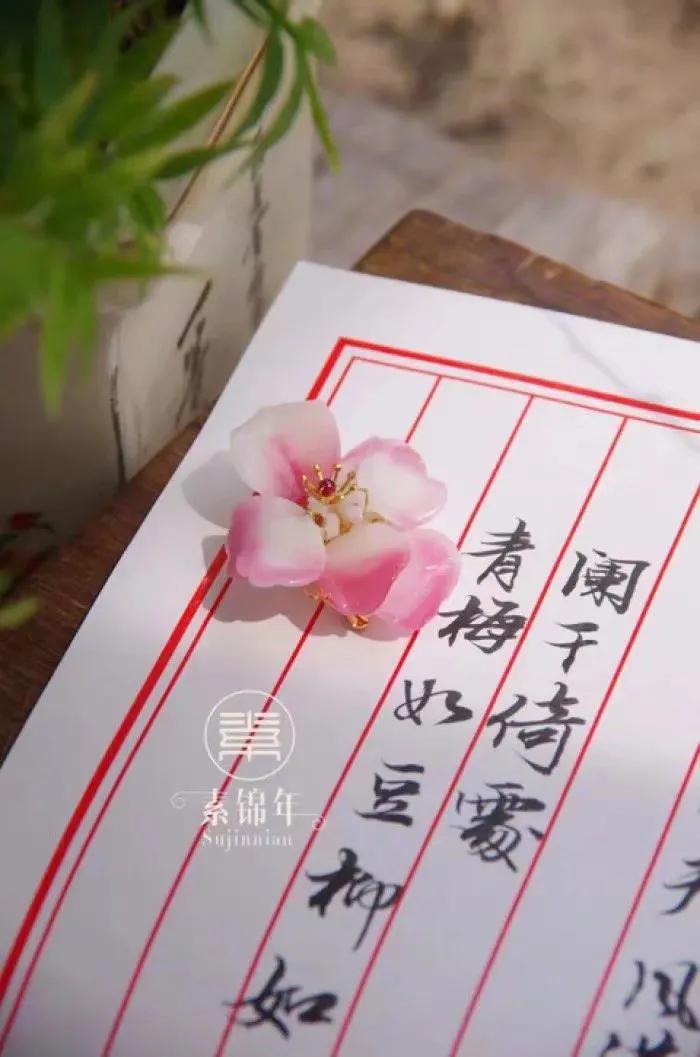 风
阑干倚處
青梅如豆柳如
素锦年
Sujinnian